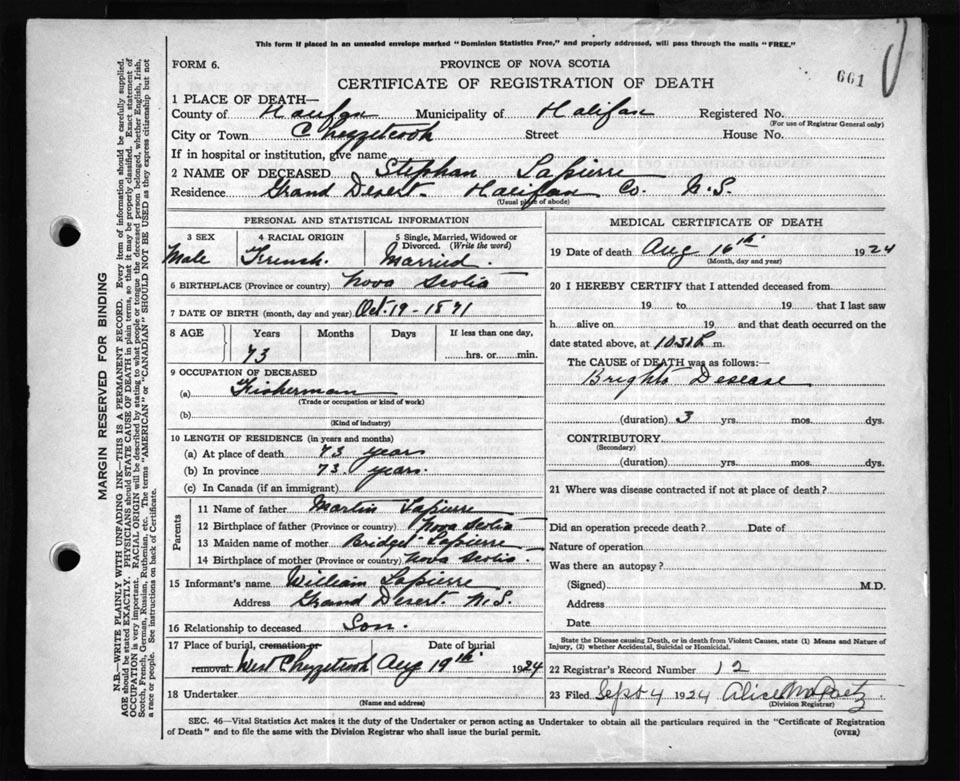 This form if placed in an unsealed envelope marked "Dominion Statistics Free," and properly addressed, will pass through the mails "FREE."
FORM 6.
PROVINCE OF NOVA SCOTIA
661
CERTIFICATE OF REGISTRATION OF DEATH
1 PLACE OF DEATH—
County of Halifax Municipality of Halifax Registered No.
(For use of Registrar General only)
City or Town Chezzetcook Street House No.
If in hospital or institution, give name
2 NAME OF DECEASED Stephan Lapierre
Residence Grand Desert. Halifax Co. N.S.
(Usual place of abode)
PERSONAL AND STATISTICAL INFORMATION
3 SEX
Male
4 RACIAL ORIGIN
French.
5 Single, Married, Widowed or
Divorced. (Write the word)
Married.
6 BIRTHPLACE (Province or country) Nova Scotia
7 DATE OF BIRTH (month, day and year) Oct. 19 - 1871
8 AGE Years Months Days If less than one day,
73 hrs. or min.
9 OCCUPATION OF DECEASED
(a) Fisherman
(Trade or occupation or kind of work)
(b)
(Kind of industry)
10 LENGTH OF RESIDENCE (in years and months)
(a) At place of death 73 years
(b) In province 73. years.
(c) In Canada (if an immigrant)
Parents
11 Name of father Martin Lapierre
12 Birthplace of father (Province or country) Nova Scotia
13 Maiden name of mother Bridget Lapierre
14 Birthplace of mother (Province or country) Nova Scotia
15 Informant's name William Lapierre
Address Grand Desert. N.S.
16 Relationship to deceased Son.
17 Place of burial, cremation or Date of burial
removal West Chezzetcook Aug 19th 1924
18 Undertaker
(Name and address)
MEDICAL CERTIFICATE OF DEATH
19 Date of death Aug 16th 1924
(Month, day and year)
20 I HEREBY CERTIFY that I attended deceased from
19 to 19 that I last saw
h alive on 19 and that death occurred on the
date stated above, at m.
The CAUSE of DEATH was as follows:—
Brights Desease
(duration) 3 yrs. mos. dys.
CONTRIBUTORY
(Secondary)
(duration) yrs. mos. dys.
21 Where was disease contracted if not at place of death?
Did an operation precede death? Date of
Nature of operation
Was there an autopsy?
(Signed) M.D.
Address
Date
State the Disease causing Death, or in death from Violent Causes, state (1) Means and Nature of
Injury, (2) whether Accidental, Suicidal or Homicidal.
22 Registrar's Record Number 12
23 Filed Sept 4 1924 Alice
(Division Registrar)
SEC. 46—Vital Statistics Act makes it the duty of the Undertaker or person acting as Undertaker to obtain all the particulars required in the "Certificate of Registration
of Death" and to file the same with the Division Registrar who shall issue the burial permit.
(OVER)
MARGIN RESERVED FOR BINDING
N.B.—WRITE PLAINLY WITH UNFADING INK—THIS IS A PERMANENT RECORD. Every item of information should be carefully supplied.
AGE should be stated EXACTLY. PHYSICIANS should STATE CAUSE OF DEATH in plain terms, so that it may be properly classified. Exact statement of
OCCUPATION is very important. RACIAL ORIGIN will be described by stating to what people or tongue the deceased person belonged, whether English, Irish,
Scotch, French, German, Russian, Ruthenian, etc. The terms "AMERICAN" or "CANADIAN" SHOULD NOT BE USED as they express citizenship but not
a race or people. See instructions on back of Certificate.